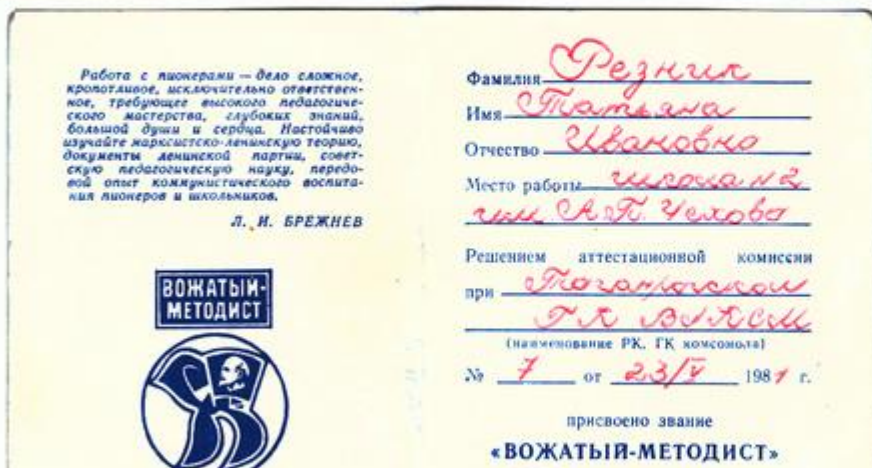 Работа с пионерами — дело сложное,
кропотливое, исключительно ответствен-
ное, требующее высокого педагогиче-
ского мастерства, глубоких знаний,
большой души и сердца. Настойчиво
изучайте марксистско-ленинскую теорию,
документы ленинской партии, совет-
скую педагогическую науку, передо-
вой опыт коммунистического воспита-
ния пионеров и школьников.
Л. И. БРЕЖНЕВ
ВОЖАТЫЙ-
МЕТОДИСТ
Фамилия Резник
Имя Татьяна
Отчество Ивановна
Место работы школа N 2
им А.П. Чехова
Решением аттестационной комиссии
при Таганрогском
ГК ВЛКСМ
(наименование РК, ГК комсомола)
№ 7 от 23/V 1981 г.
присвоено звание
«ВОЖАТЫЙ-МЕТОДИСТ»